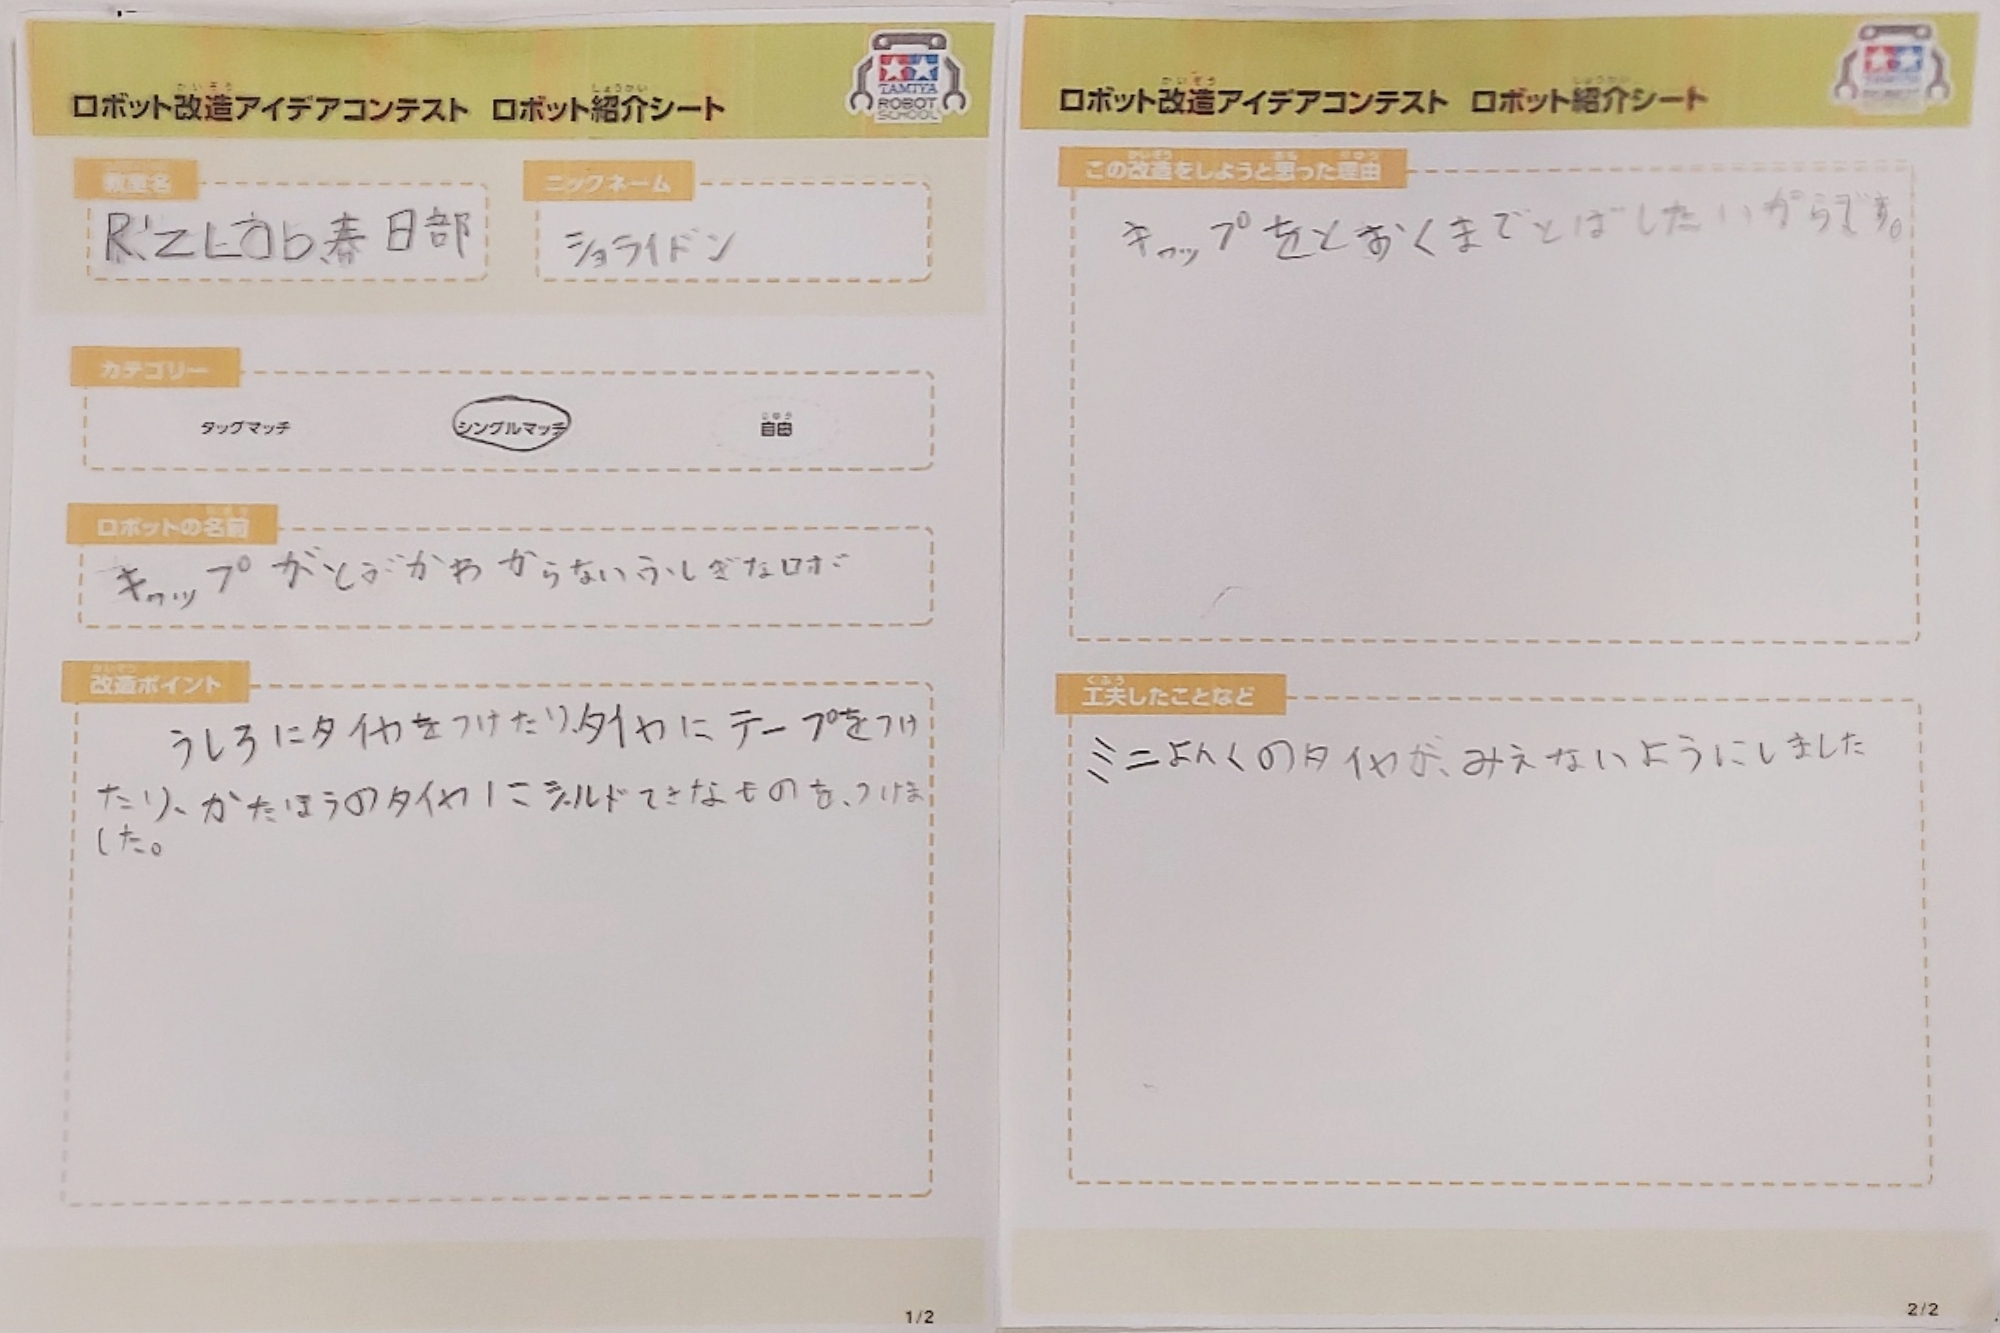 ロボット改造アイデアコンテスト ロボット紹介シート
TAMIYA
ROBOT
SCHOOL
教室名
R'z LAb.春日部
ニックネーム
ショライドン
カテゴリー
タッグマッチ
シングルマッチ
自由
ロボットの名前
キャップがとぶかわからないふしぎなロボ
改造ポイント
うしろにタイヤをつけたり、タイヤにテープをつけ
たり、かたほうのタイヤにシールドてきなものを、つけま
した。
1/2
ロボット改造アイデアコンテスト ロボット紹介シート
この改造をしようと思った理由
キャップをとおくまでとばしたいからです。
工夫したことなど
ミニよんくのタイヤが、みえないようにしました
2/2